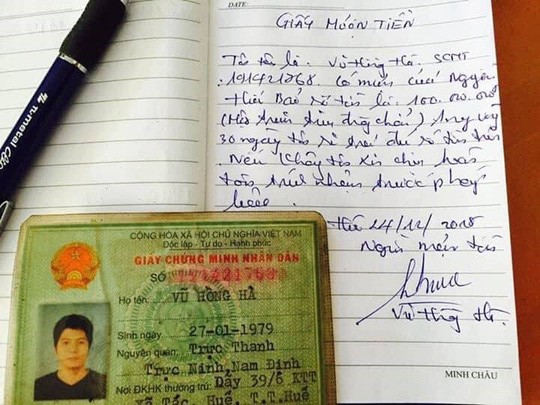 DATE:
GIẤY MƯỢN TIỀN
Tôi tên là Vũ Hồng Hà SCMT
191421768. Có mượn của Nguyễn
Thái Bảo số tiền là 100.000.000
30 ngày tôi sẽ trả đủ số tiền trên
Nếu tôi xin chịu hoàn
toàn trách nhiệm trước pháp
24/12/2018
Người mượn tiền
Vũ Hồng Hà
MINH CHÂU
CỘNG HÒA XÃ HỘI CHỦ NGHĨA VIỆT NAM
Độc lập - Tự do - Hạnh phúc
GIẤY CHỨNG MINH NHÂN DÂN
SỐ 191421768
Họ tên: VŨ HỒNG HÀ
Sinh ngày 27-01-1979
Nguyên quán: Trực Thanh
Trực Ninh, Nam Định
Nơi ĐKHK thường trú: Dãy 39/6 KTT
Xã Tắc, Huế, T.T.Huế